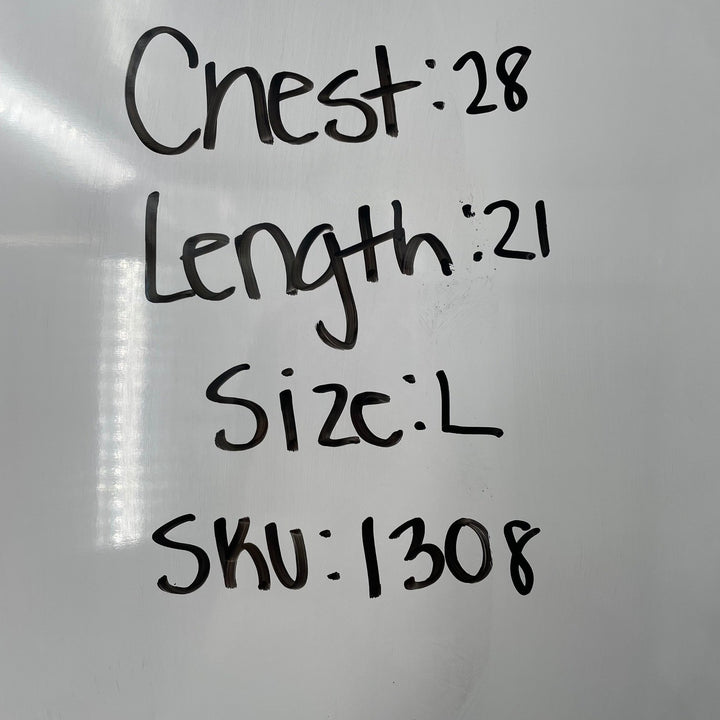 Chest:28
Length:21
Size:L
SKU:1308